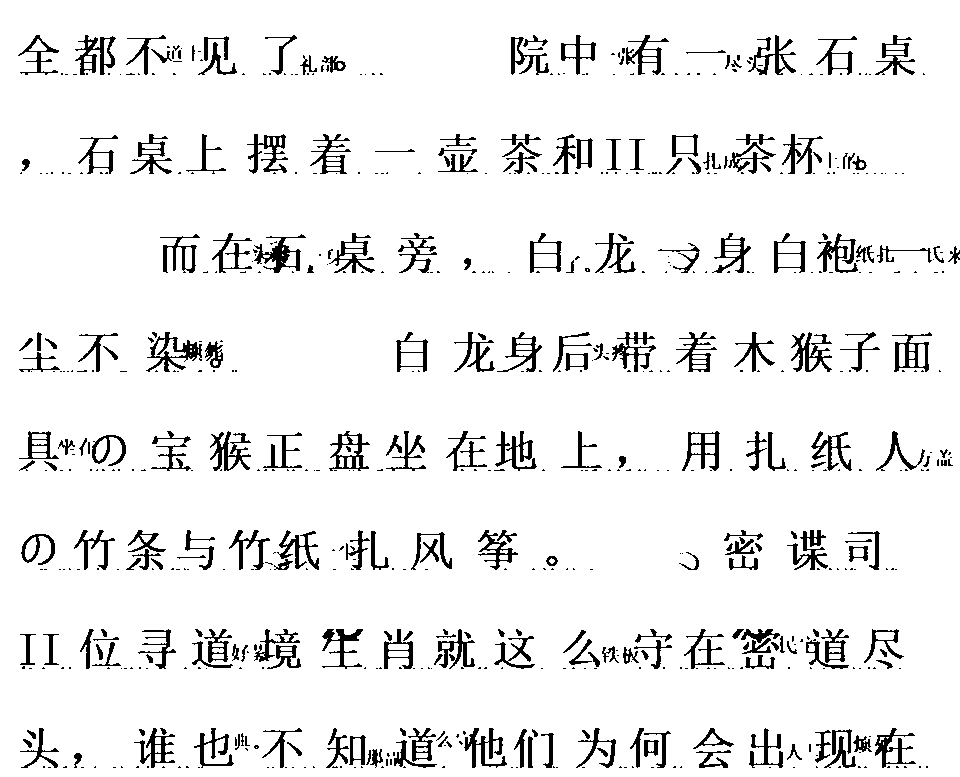 全都不见了。 院中有一张石桌
，石桌上摆着一壶茶和II只茶杯。
而在石桌旁，白龙一身白袍一
尘不染。 白龙身后带着木猴子面
具の宝猴正盘坐在地上，用扎纸人
の竹条与竹纸扎风筝。 密谍司
II位寻道境生肖就这么守在密道尽
头，谁也不知道他们为何会出现在